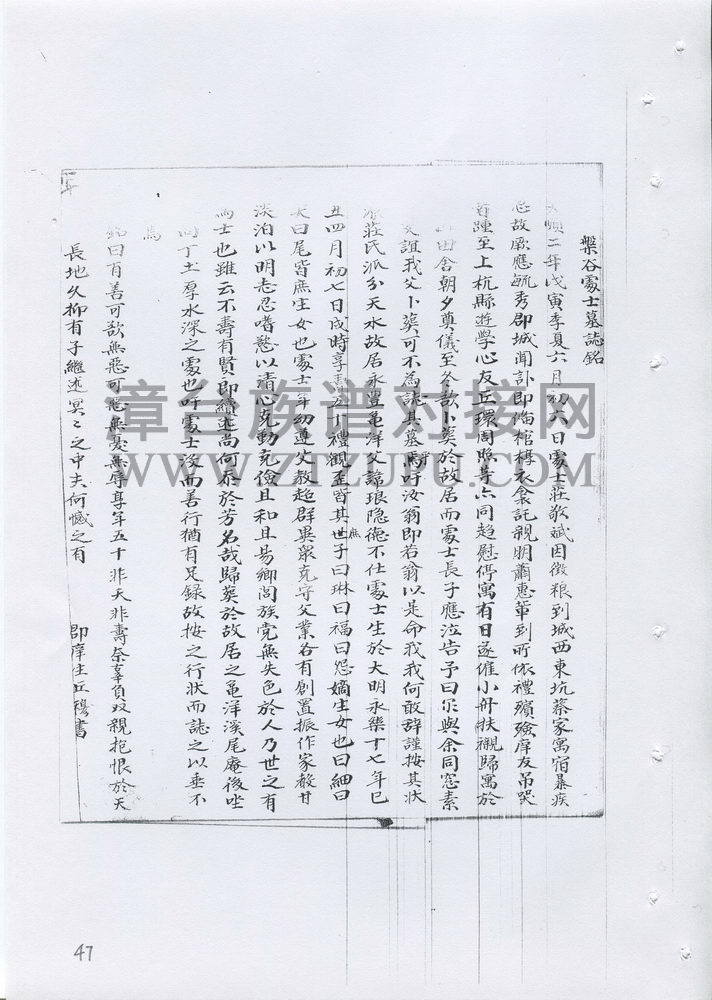 槃谷處士墓誌銘
順二年戊寅季夏六月初六日處士莊敬斌因徵粮到城西東坑蔡家寓宿暴疾
故厥應毓秀郡城聞訃即備棺槨衣衾託親朋蕭惠華到所依禮殯殮庠友吊哭
踵至上杭縣遊學心友丘環周照等亦同趍慰停寓有日遂催小舟扶櫬歸寓於
田舍朝夕奠儀至冬卜葬於故居而處士長子應泣告予曰尔與余同窓素
誼我父卜葬可不為誌其墓焉吁汝翁即若翁以是命我我何敢辞謹按其狀
莊氏派分天水故居永豐龜洋父諱琅隐德不仕處士生於大明永樂十七年己
丑四月初七日戌時享壽五十禮觀歪皆其庶世子曰琳曰福曰怨嫡生女也曰細曰
天曰尾皆庶生女也處士年幼遵父教超群異衆克守父業各有創置振作家教甘
淡泊以明志忍嗜慾以清心克勤克儉且和且易鄉閭族党無失色於人乃世之有
為士也雖云不壽有賢即續述尚何忝於芳名哉歸葵於故居之龜洋溪尾庵後坐
向丁土厚水深之處也吁處士没而善行猶有足録故按之行狀而誌之以垂不
焉
銘曰有善可欲無惡可惡無憂無辱享年五十非夭非壽奈辜負双親抱恨於天
長地久抑有子繼述冥冥之中夫何憾之有
郡庠生丘穆書
漳台族谱对接网
WWW.ZTZUPU.COM
47